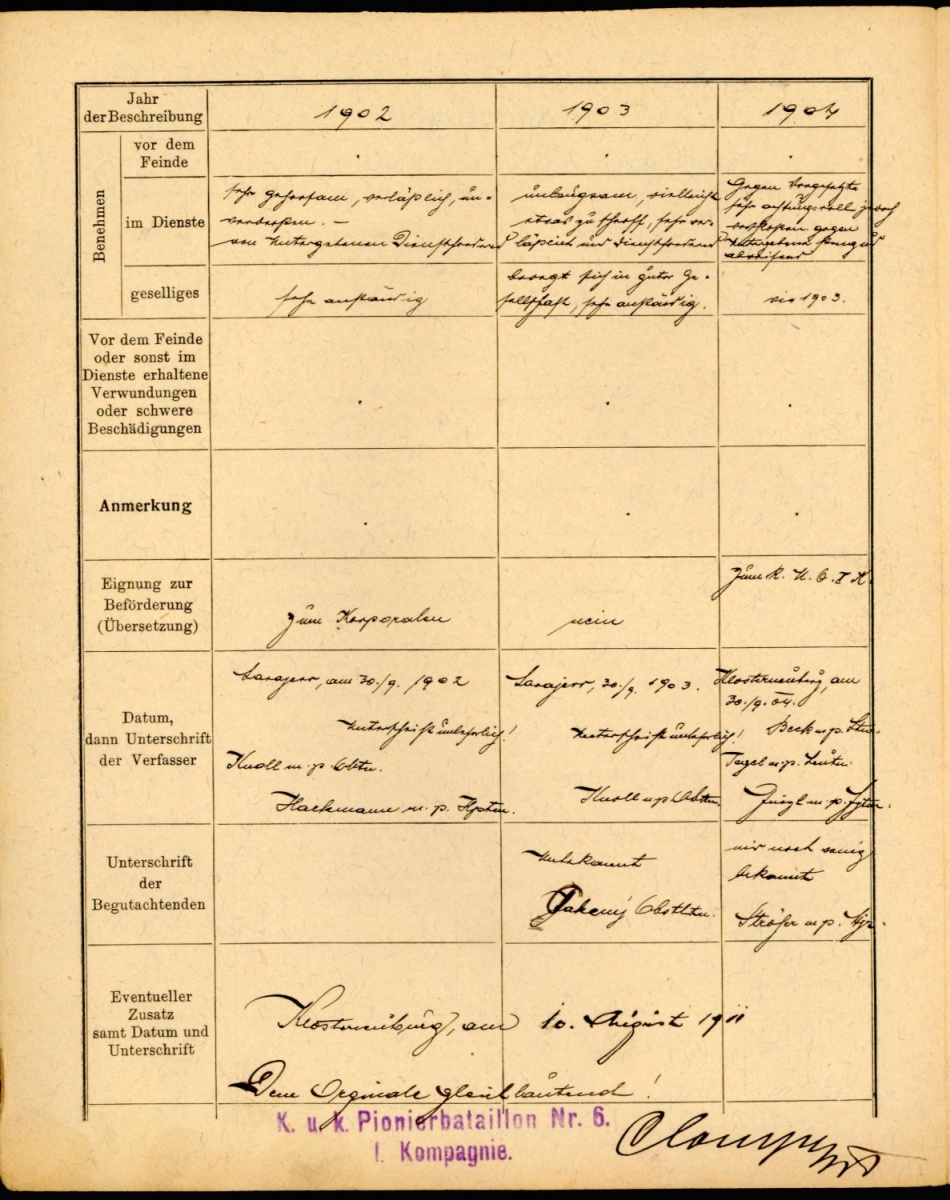 Jahr
der Beschreibung
1902
1903
1904
Benehmen
vor dem
Feinde
im Dienste
sehr gehorsam, verläßlich, un-
verdrossen. –
von Untergebenen Dienstfordernd
unbeugsam, vielleicht
etwas zu schroff, sehr ver-
läßlich und dienstfordernd
Gegen Vorgesetzte
sehr achtungsvoll jedoch
verschlossen gegen
Untergebene streng und
abweisend
geselliges
sehr anständig
bewegt sich in guter Ge-
sellschaft, sehr anständig.
wie 1903.
Vor dem Feinde
oder sonst im
Dienste erhaltene
Verwundungen
oder schwere
Beschädigungen
Anmerkung
Eignung zur
Beförderung
(Übersetzung)
zum Korporalen
nein
Zum K. U. O. I K.
Datum,
dann Unterschrift
der Verfasser
Sarajevo, am 30./9. 1902
Unterschrift unleserlich!
Knoll m. p. Obtn.
Hackmann m. p. Hptm.
Sarajevo, 30./9. 1903.
Unterschrift unleserlich!
Knoll mp Obtn.
Klosterneuburg, am
30./9. 04.
Beck m.p.
m.p. Leutn.
m. p.
Unterschrift
der
Begutachtenden
Unbekannt
Obstltn.
mir noch wenig
bekannt
m. p. Mjr.
Eventueller
Zusatz
samt Datum und
Unterschrift
Klosterneuburg, am 10. August 1911
Dem Orginale gleichlautend!
K. u. k. Pionierbataillon Nr. 6.
1. Kompagnie.